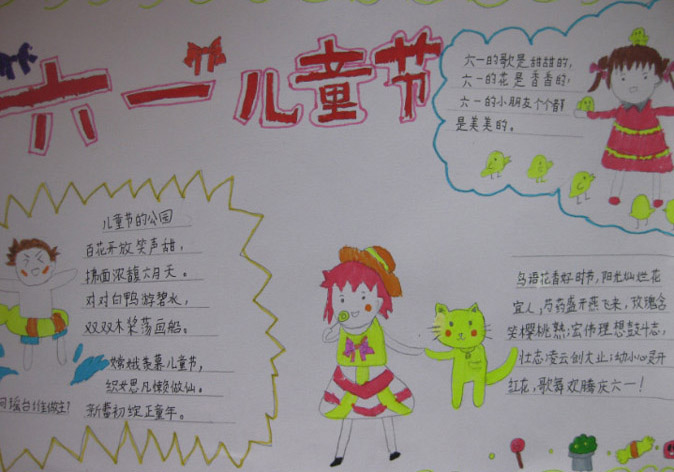 "六一"儿童节
六一的歌是甜甜的，
六一的花是香香的，
六一的小朋友个个都
是美美的。
儿童节的公园
百花开放笑声甜，
拂面浓馥六月天。
对对白鸭游碧水，
双双木桨荡画船。
嫦娥羡慕儿童节，
织女思凡懒做仙。
问瑶台谁做主？
新蕾初绽正童年。
鸟语花香好时节，阳光灿烂花
宜人，芍药盛开燕飞来，玫瑰含
笑樱桃熟；宏伟理想鼓斗志，
壮志凌云创大业；幼小心灵开
红花，歌舞欢腾庆六一！